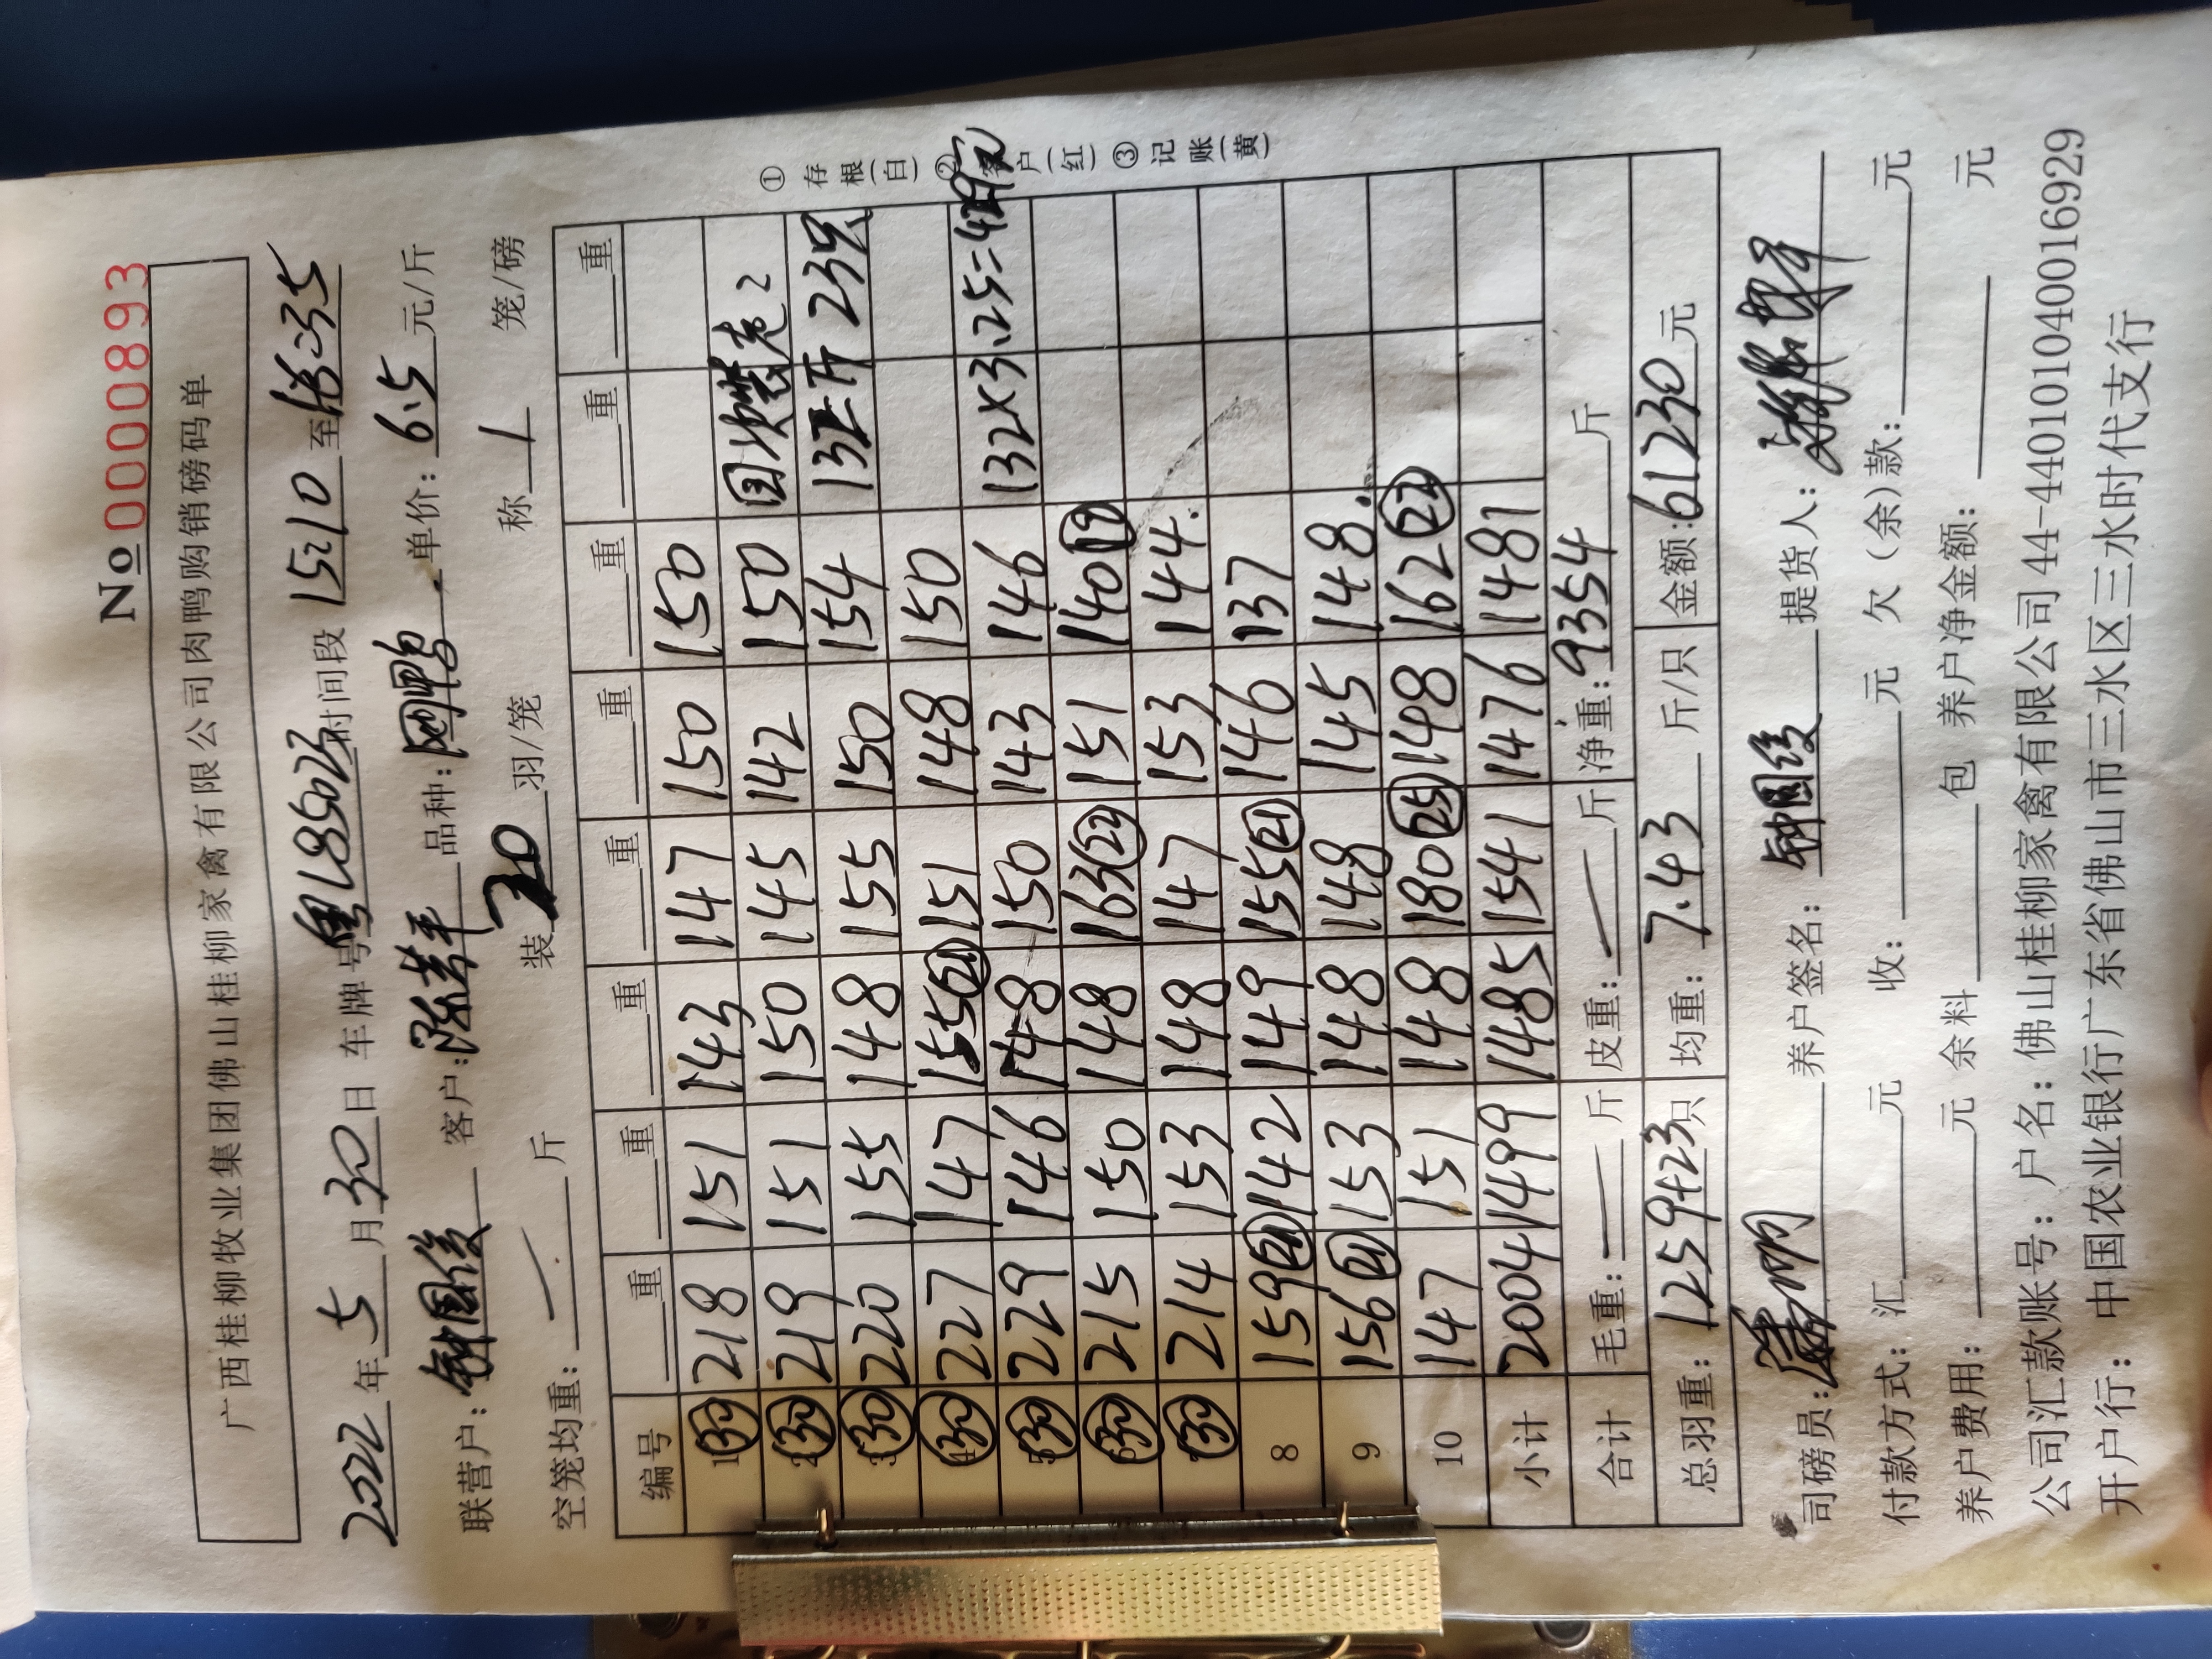 No 0000893
广西桂柳牧业集团佛山桂柳家禽有限公司肉鸭购销磅码单
2022年5月30日 车牌号粤L85023时间段15:10至16:35
联营户:钟国俊 客户: 品种:国鸭 单价:6.5元/斤
空笼均重: — 斤 装20羽/笼 称1笼/磅
编号 重 重 重 重 重 重 重 重
1 30 218 151 143 147 150 150
2 30 219 151 150 145 142 150 2
3 30 220 155 148 155 150 154 132斤 23只
4 30 227 147 155 21 151 148 150
5 30 229 146 148 150 143 146 132×3.25=429元
6 30 215 150 148 163 22 151 140 19
7 30 214 153 148 147 153 144
8 159 21 142 149 155 21 146 137
9 156 21 153 148 148 145 148
10 147 151 148 180 25 148 162 22
小计 2004 1499 1485 1541 1476 1481
合计 毛重: — 斤 皮重: — 斤 净重:9354斤
总羽重:1259+23只 均重:7.43斤/只 金额:61230元
司磅员: 养户签名:钟国俊 提货人:
付款方式:汇 元 收: 元 欠(余)款: 元
养户费用: 元 余料 包 养户净金额: 元
公司汇款账号:户名:佛山桂柳家禽有限公司 44-440101040016929
开户行:中国农业银行广东省佛山市三水区三水时代支行
①存根(白) ②客户(红) ③记账(黄)